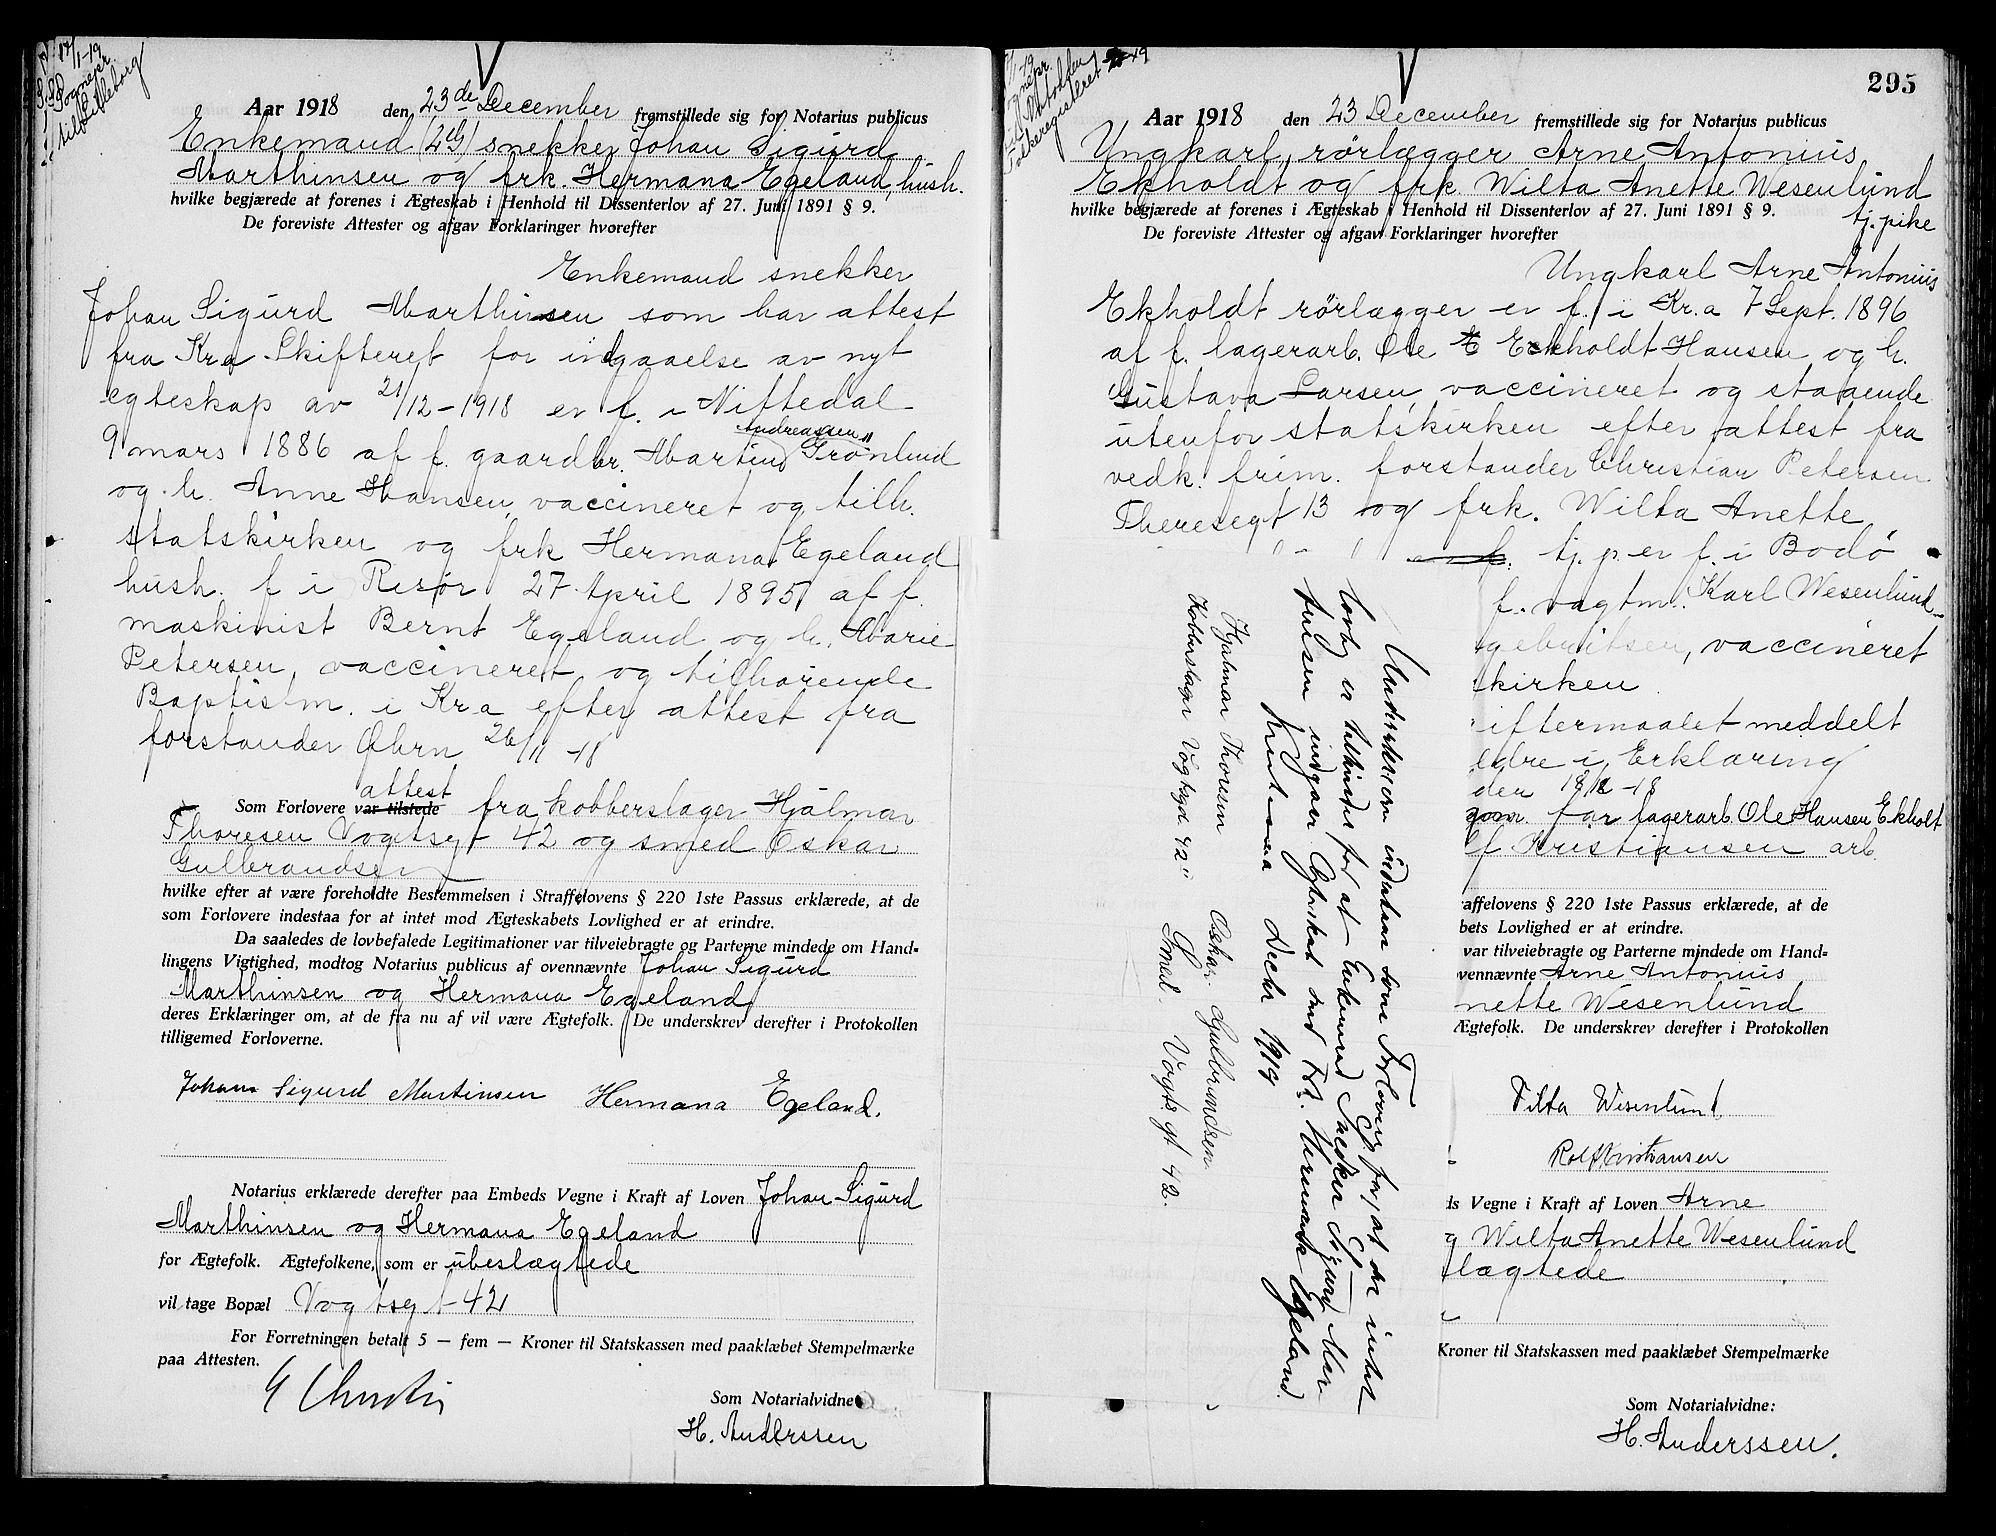 17/1-19
Sognepr.
til Lilleborg
Aar 1918 den 23de December fremstillede sig for Notarius publicus
Enkemand (2g) snekker Johan Sigurd
Marthinsen og frk. Hermana Egeland, hush.
hvilke begjærede at forenes i Ægteskab i Henhold til Dissenterlov af 27. Juni 1891 § 9.
De foreviste Attester og afgav Forklaringer hvorefter
Enkemand snekker
Johan Sigurd Marthinsen som har attest
fra Kra Skifteret for indgaaelse av nyt
egteskap av 21/12-1918 er f. i Nittedal
9 mars 1886 af f. gaardbr. Martin Andreassen Grønlund
og h. Anne Hansen, vaccineret og tilh.
statskirken og frk Hermana Egeland
hush. f i Risør 27 April 1895 af f.
maskinist Bernt Egeland og h. Marie
Petersen, vaccineret og tilhørende
Baptistm. i Kra efter attest fra
forstander Øhrn 26/11-18
attest
Som Forlovere var tilstede fra kobberslager Hjalmar
Thoresen Vogtsgt 42 og smed Oskar
Gulbrandsen
hvilke efter at være foreholdte Bestemmelsen i Straffelovens § 220 1ste Passus erklærede, at de
som Forlovere indestaa for at intet mod Ægteskabets Lovlighed er at erindre.
Da saaledes de lovbefalede Legitimationer var tilveiebragte og Parterne mindede om Hand-
lingens Vigtighed, modtog Notarius publicus af ovennævnte Johan Sigurd
Marthinsen og Hermana Egeland
deres Erklæringer om, at de fra nu af vil være Ægtefolk. De underskrev derefter i Protokollen
tilligemed Forloverne.
Johan Sigurd Martinsen Hermana Egeland.
Notarius erklærede derefter paa Embeds Vegne i Kraft af Loven Johan Sigurd
Marthinsen og Hermana Egeland
for Ægtefolk. Ægtefolkene, som er ubeslægtede
vil tage Bopæl Vogtsgt 42
For Forretningen betalt 5 — fem — Kroner til Statskassen med paaklæbet Stempelmærke
paa Attesten.
Som Notarialvidne
H. Anderssen
295
Folkeregisteret
Aar 1918 den 23 December fremstillede sig for Notarius publicus
Ungkarl, rørlægger Arne Antonius
Ekholdt og frk. Wilta Anette Wesenlund
hvilke begjærede at forenes i Ægteskab i Henhold til Dissenterlov af 27. Juni 1891 § 9.
tj. pike
De foreviste Attester og afgav Forklaringer hvorefter
Ungkarl Arne Antonius
Ekholdt rørlægger er f. i Kr.a 7 Sept. 1896
af f. lagerarb. Ole Ekholdt Hansen og h.
Gustava Larsen, vaccineret og staaende
utenfor statskirken efter attest fra
vedk. frim. forstander Christian Petersen
Theresegt 13 og frk. Wilta Anette
f. tj. p. er f. i Bodø
f. vagtm. Karl Wesenlund
gebritsen, vaccineret
kirken
iftermaalet meddelt
ldre i Erklæring
den 18/12-18
som for lagerarb. Ole Hansen Ekholt
lf Kristiansen arb.
affelovens § 220 1ste Passus erklærede, at de
bets Lovlighed er at erindre.
var tilveiebragte og Parterne mindede om Hand-
vennævnte Arne Antonius
nette Wesenlund
Ægtefolk. De underskrev derefter i Protokollen
Vilta Wesenlund
Rolf Kristiansen
ds Vegne i Kraft af Loven Arne
g Wilta Anette Wesenlund
lægtede
Kroner til Statskassen med paaklæbet Stempelmærke
Som Notarialvidne:
H. Anderssen.
Undertegnede indestaar som Forlovere for, at der intet
lovlig er tilhinder for at Enkemand Snekker Sigurd Mar
tinsen indgaar Egteskab med Frk. Hermanda Egeland.
Kristiania Decbr 1918
Hjalmar Thoresen Oskar Gulbrandsen
Kobberslager Vogtsgd 42 Smed. Vogts gt 42.